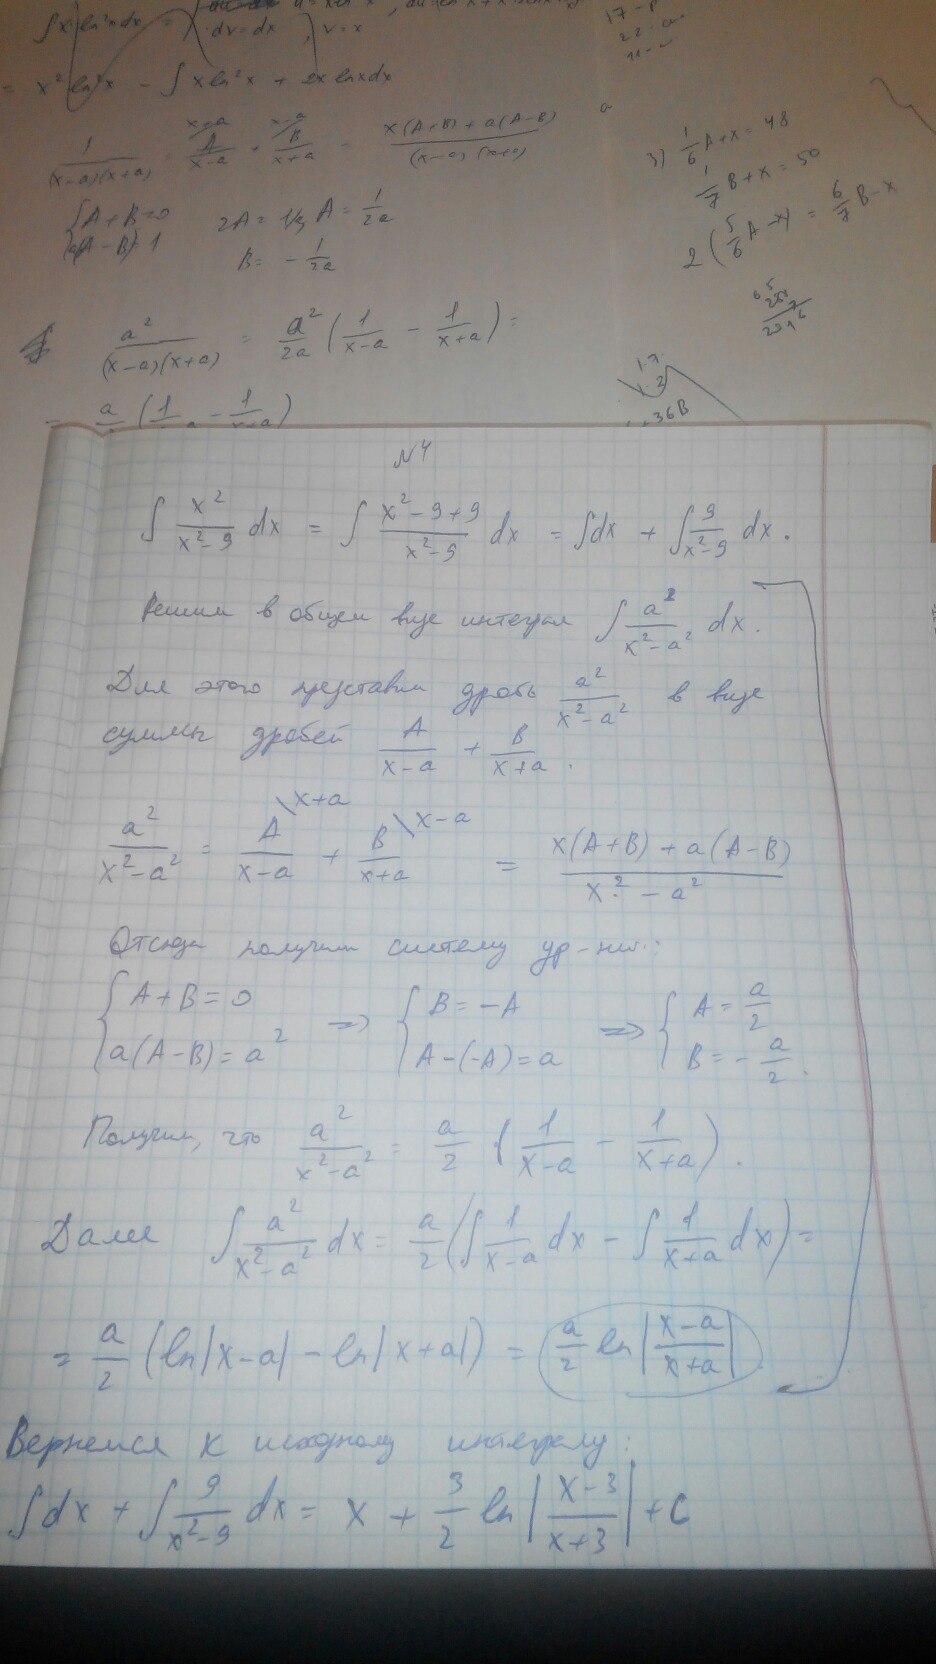 = x² ln²x - ∫ x ln²x + 2x lnx dx
1/((x-a)(x+a)) = A/(x-a) + B/(x+a) = (x(A+B) + a(A-B))/((x-a)(x+a))
{ A+B=0
a(A-B)=1
A = 1/2a
B = - 1/2a
3) 1/6 A + x = 48
1/7 B + x = 50
2 (5/6 A - x) = 6/7 B - x
a²/((x-a)(x+a)) = a²/2a (1/(x-a) - 1/(x+a)) =
36B
N4
∫ x²/(x²-9) dx = ∫ (x²-9+9)/(x²-9) dx = ∫dx + ∫ 9/(x²-9) dx.
Решим в общем виде интеграл ∫ a²/(x²-a²) dx.
Для этого представим дробь a²/(x²-a²) в виде
суммы дробей A/(x-a) + B/(x+a).
a²/(x²-a²) = A\x+a/(x-a) + B\x-a/(x+a) = (x(A+B) + a(A-B))/(x²-a²)
Отсюда получим систему ур-ний:
{ A+B=0 => { B=-A => { A = a/2
a(A-B)=a² A-(-A)=a B = - a/2.
Получим, что a²/(x²-a²) = a/2 (1/(x-a) - 1/(x+a)).
Далее ∫ a²/(x²-a²) dx = a/2 (∫ 1/(x-a) dx - ∫ 1/(x+a) dx) =
= a/2 (ln|x-a| - ln|x+a|) = a/2 ln |(x-a)/(x+a)|
Вернемся к исходному интегралу:
∫dx + ∫ 9/(x²-9) dx = x + 3/2 ln |(x-3)/(x+3)| + C